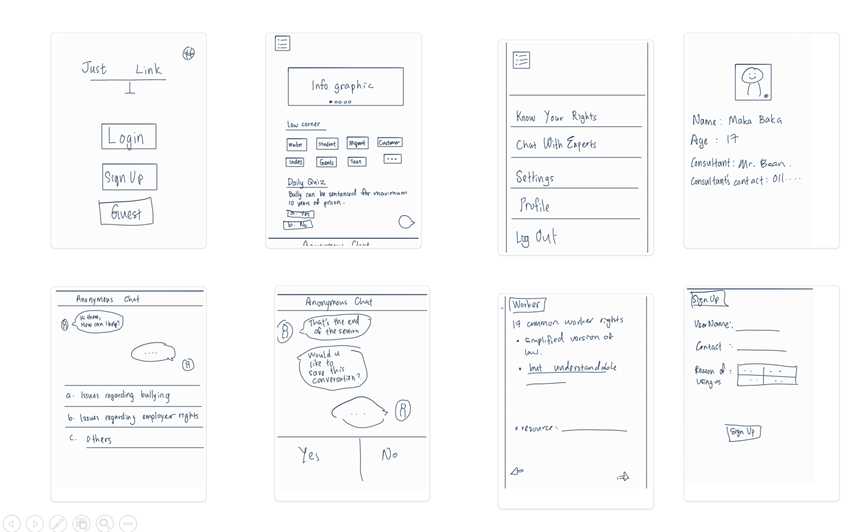 Just Link
Login
Sign Up
Guest
Info graphic
Law corner
Student
Migrant
Customer
Ladies
Teen
...
Daily Quiz
Bully can be sentenced for maximum
10 years of prison.
a. Yes
b. No
Anonymous Chat
Know Your Rights
Chat With Experts
Settings
Profile
Log Out
Name: Maka Baka
Age : 17
Consultant: Mr. Bean.
Consultant's contact: 011....
Anonymous Chat
Hi there,
How can I help?
....
a. Issues regarding bullying
b. Issues regarding employer rights
c. Others
Anonymous Chat
That's the end
of the session
Would u
like to
save this
conversation?
...
Yes No
Worker
17 common worker rights
• Simplified version of
law.
• but understandable
resource:
Sign Up
User Name:
Contact :
Reason of :
using us
Sign Up